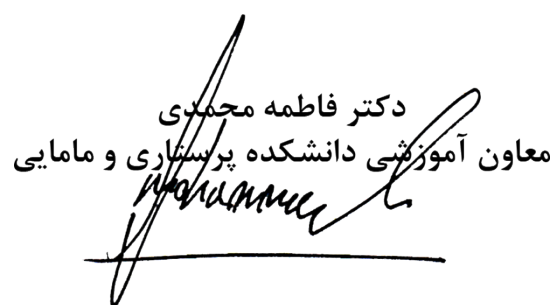 دکتر فاطمه محمدی
معاون آموزشی دانشکده پرستاری و مامایی